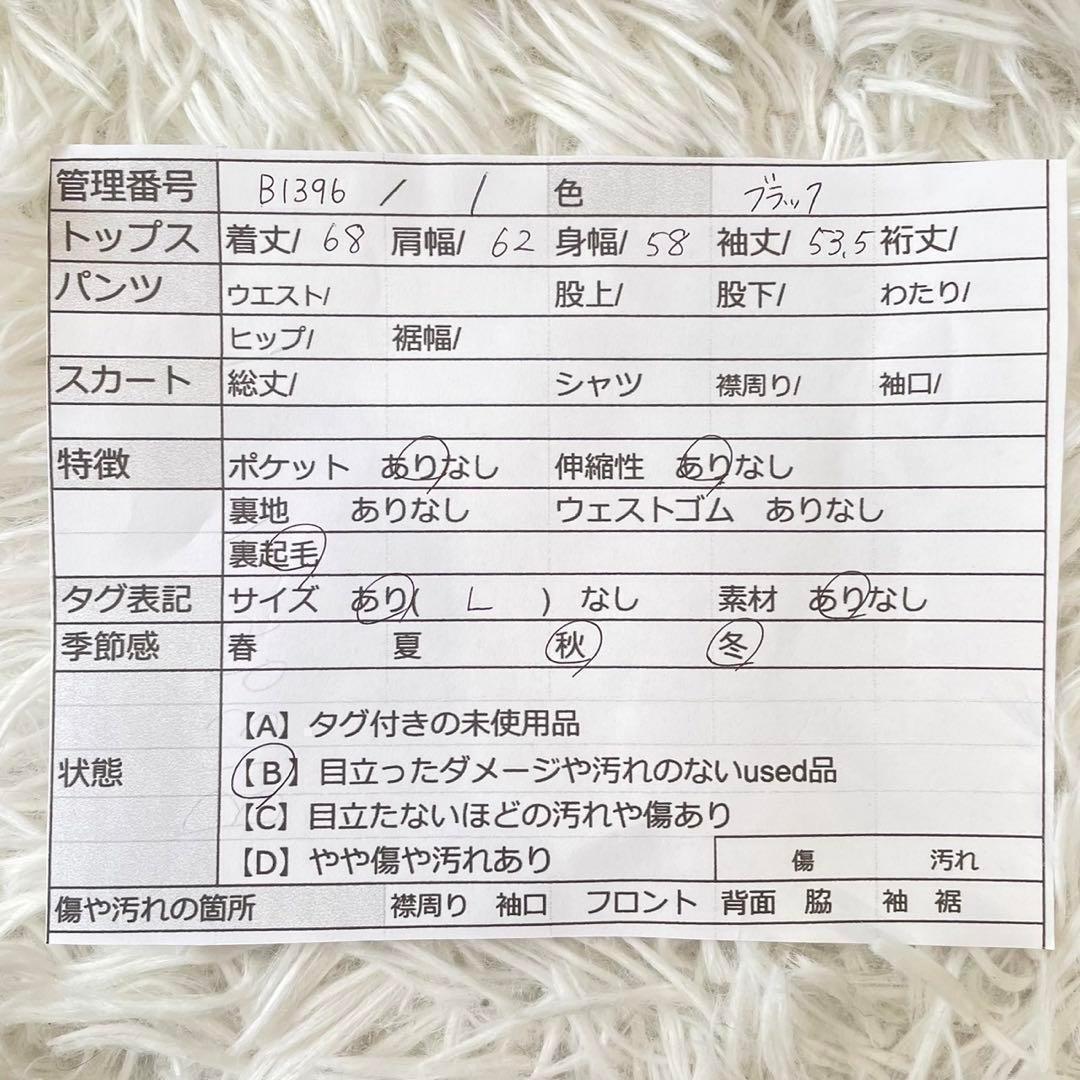 管理番号 B1396 / / 色 ブラック
トップス 着丈/ 68 肩幅/ 62 身幅/ 58 袖丈/ 53.5 裄丈/
パンツ ウエスト/ 股上/ 股下/ わたり/
ヒップ/ 裾幅/
スカート 総丈/ シャツ 襟周り/ 袖口/
特徴 ポケット ありなし 伸縮性 ありなし
裏地 ありなし ウェストゴム ありなし
裏起毛
タグ表記 サイズ あり( L ) なし 素材 ありなし
季節感 春 夏 秋 冬
【A】タグ付きの未使用品
状態 【B】目立ったダメージや汚れのないused品
【C】目立たないほどの汚れや傷あり
【D】やや傷や汚れあり 傷 汚れ
傷や汚れの箇所 襟周り 袖口 フロント 背面 脇 袖 裾